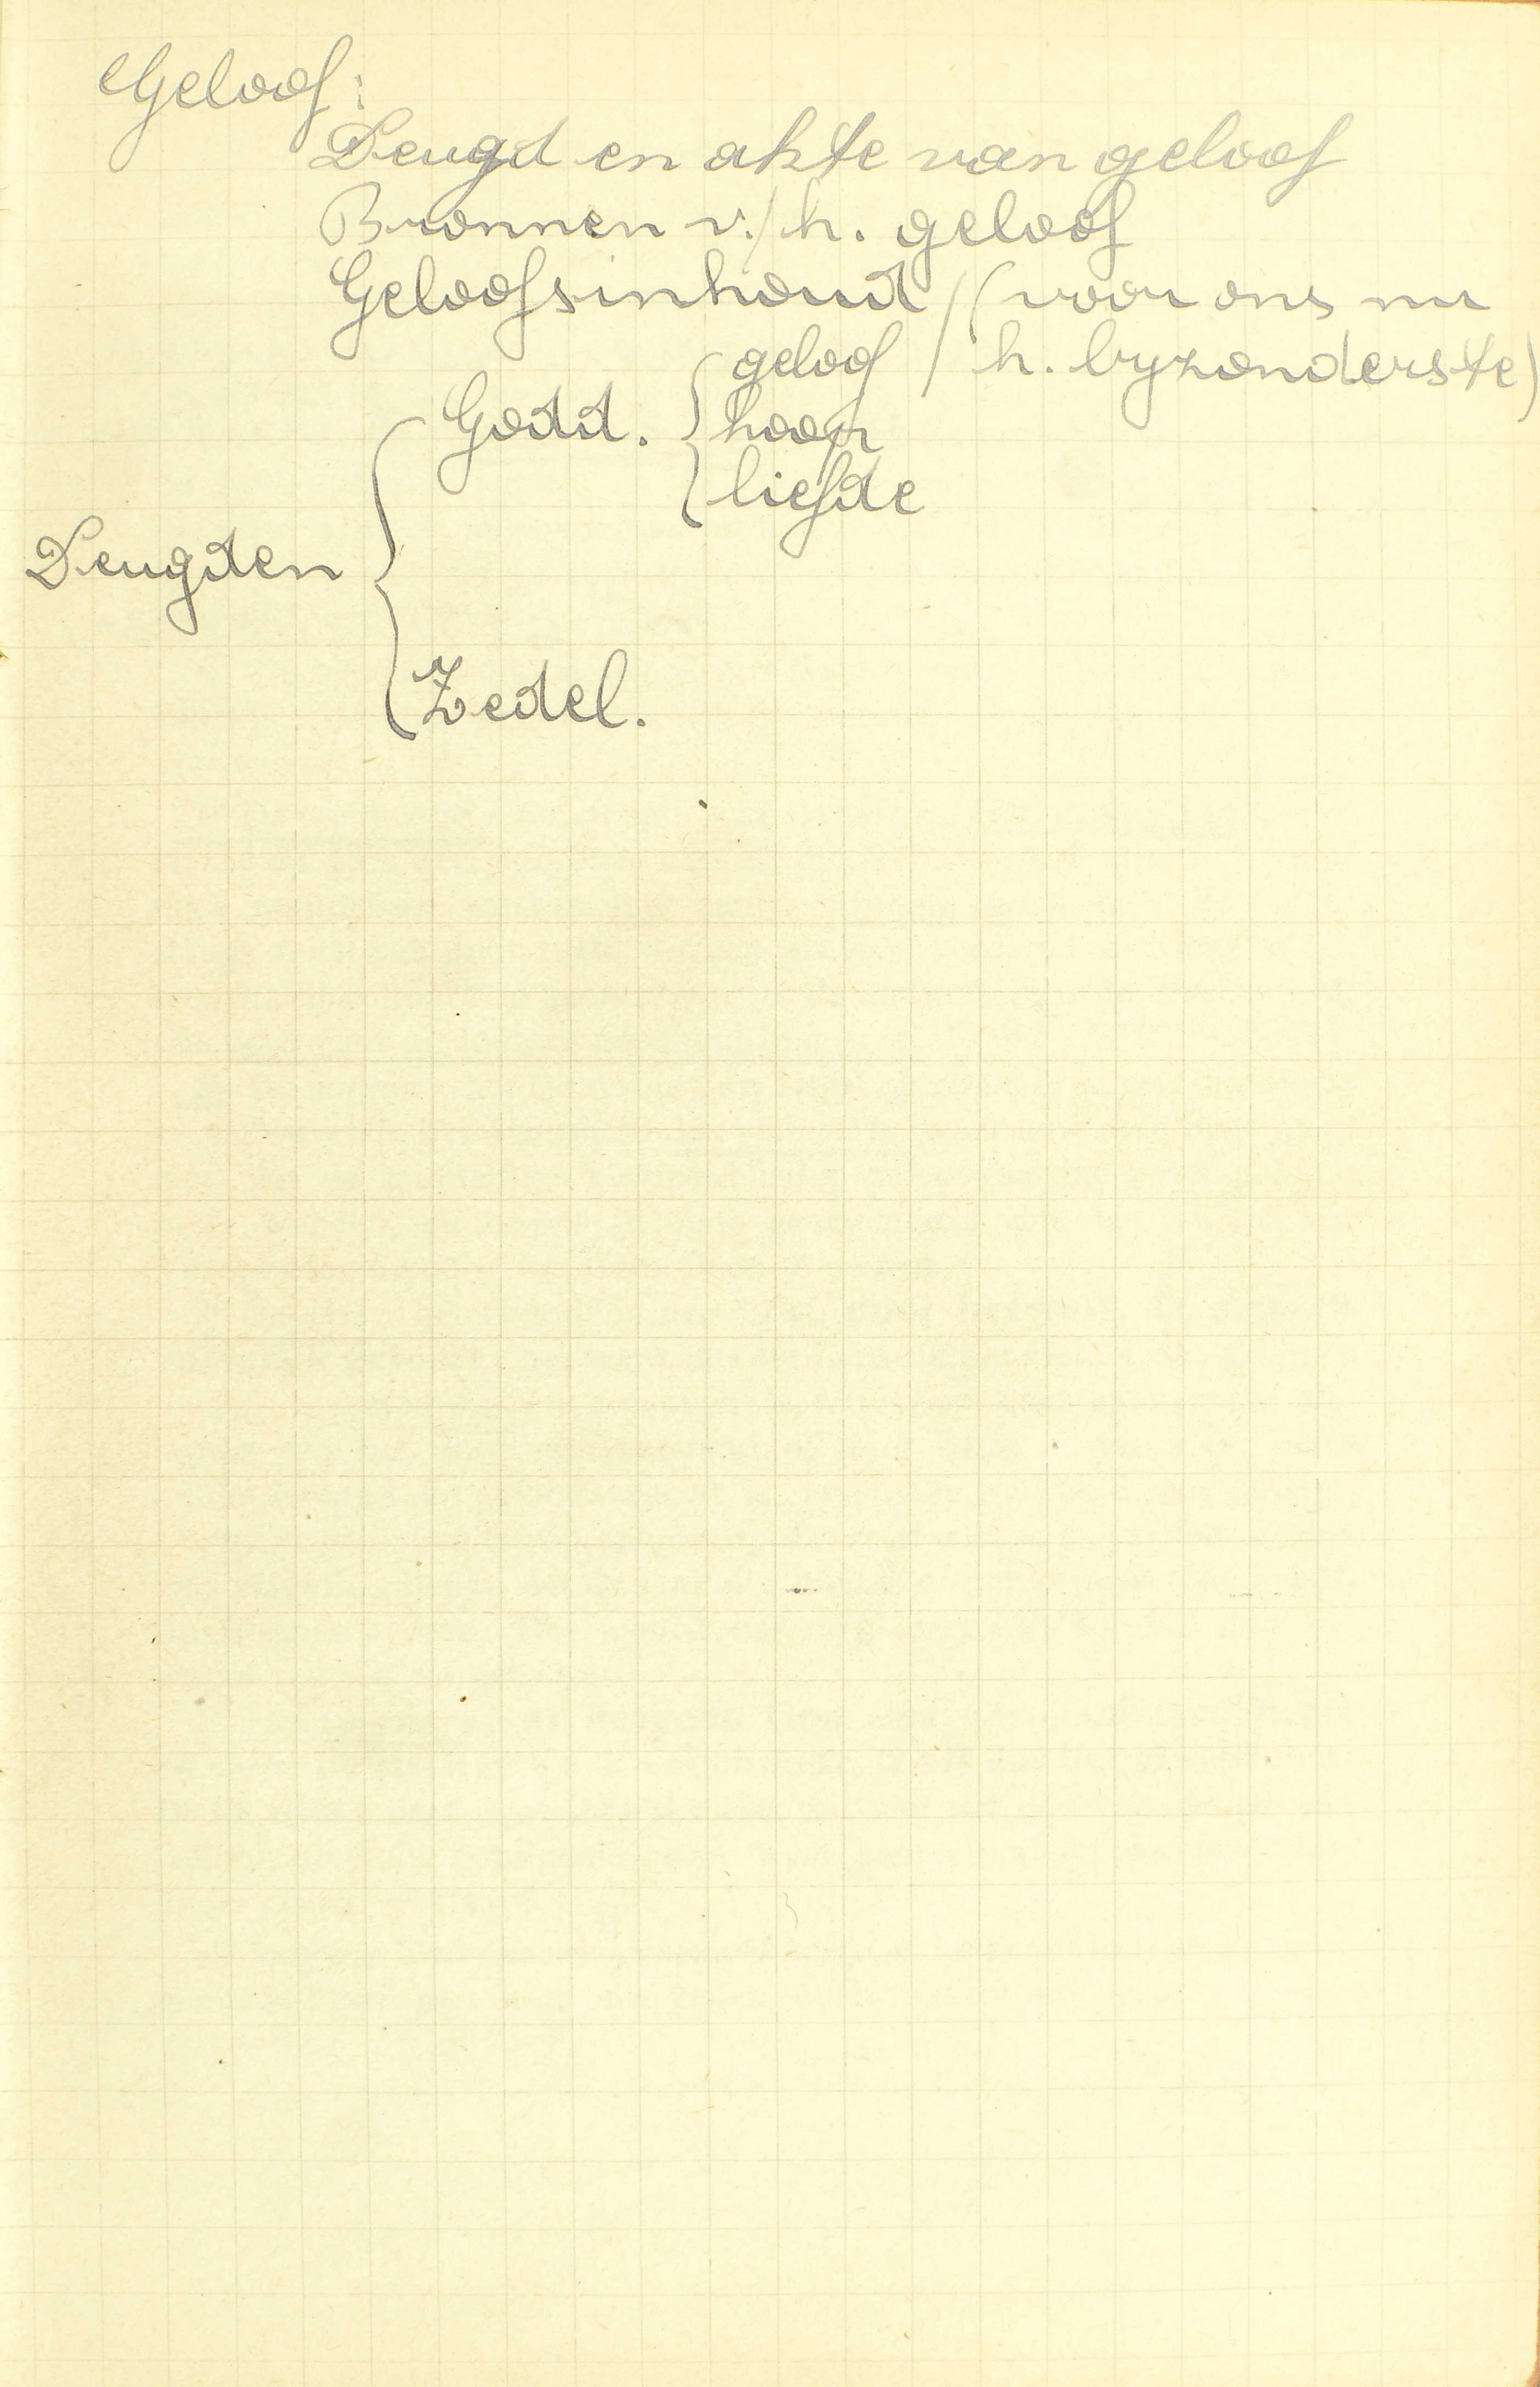 Geloof:
Deugd en akte van geloof
Bronnen v./h. geloof
Geloofsinhoud / (voor ons nu
h. byzonderste)
geloof
Godd. { hoop
liefde
Deugden {
Zedel.